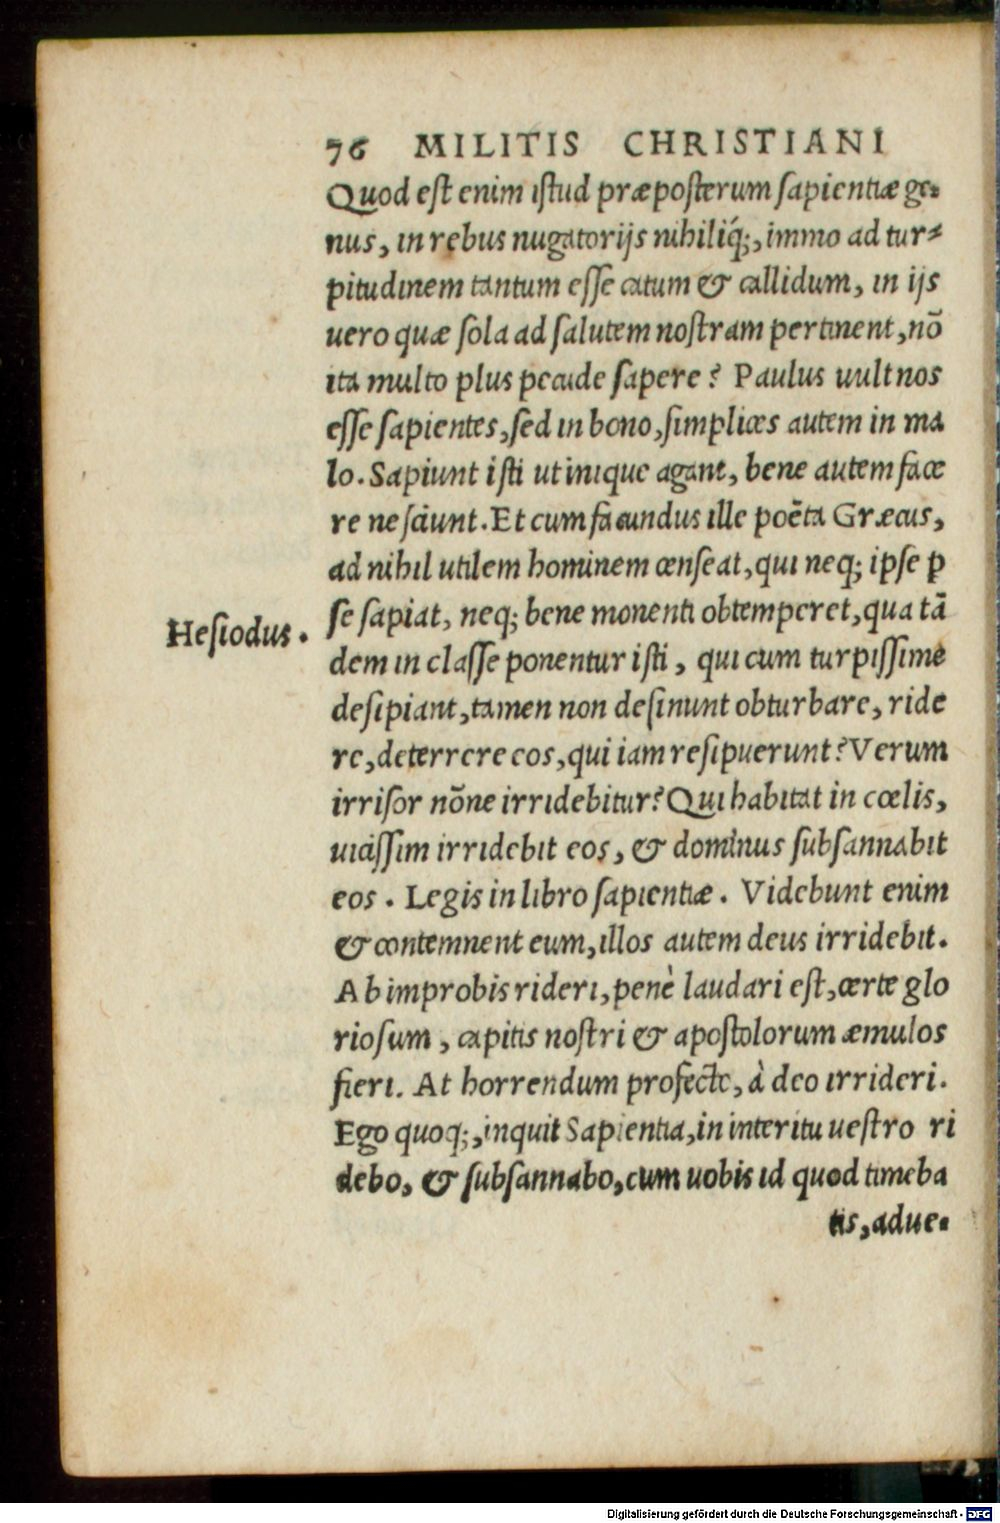 76 MILITIS CHRISTIANI
Quod est enim istud præposterum sapientiæ ge-
nus, in rebus nugatorijs nihiliq́;, immo ad tur-
pitudinem tantum esse catum & callidum, in ijs
uero quæ sola ad salutem nostram pertinent, nō
ita multo plus pecude sapere? Paulus uult nos
esse sapientes, sed in bono, simplices autem in ma
lo. Sapiunt isti ut inique agant, bene autem face
re nesciunt. Et cum facundus ille poëta Græcus,
ad nihil utilem hominem censeat, qui neq; ipse p
se sapiat, neq; bene monenti obtemperet, qua tā
Hesiodus.
dem in classe ponentur isti, qui cum turpissime
desipiant, tamen non desinunt obturbare, ride
re, deterrere eos, qui iam resipuerunt? Verum
irrisor nōne irridebitur? Qui habitat in cœlis,
uicissim irridebit eos, & dominus subsannabit
eos. Legis in libro sapientiæ. Videbunt enim
& contemnent eum, illos autem deus irridebit.
Ab improbis rideri, penè laudari est, certe glo
riosum, capitis nostri & apostolorum æmulos
fieri. At horrendum profecto, à deo irrideri.
Ego quoq;, inquit Sapientia, in interitu uestro ri
debo, & subsannabo, cum uobis id quod timeba
tis, adue-
Digitalisierung gefördert durch die Deutsche Forschungsgemeinschaft - DFG